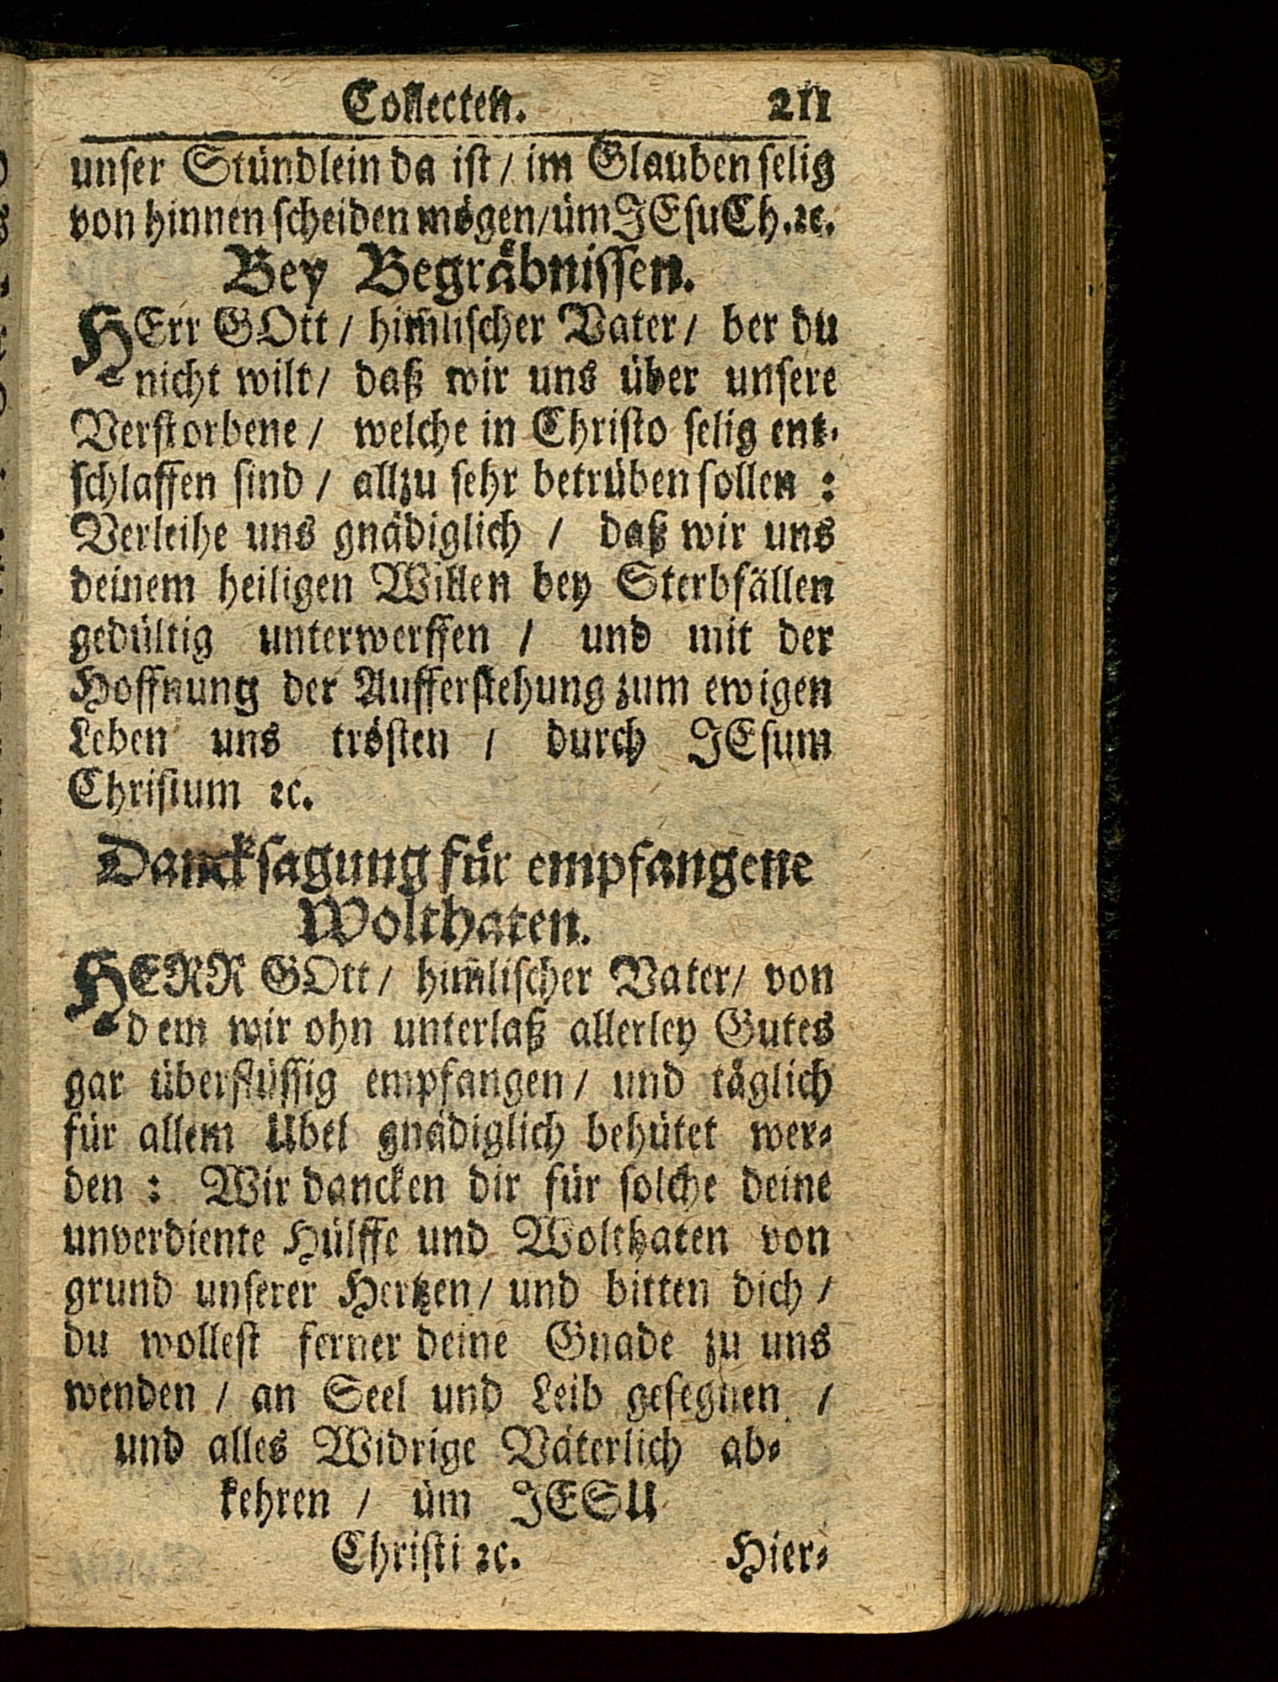 Collecten. 211
unser Stündlein da ist / im Glauben selig
von hinnen scheiden mögen / üm JEsu Ch. ꝛc.
Bey Begräbnissen.
HErr GOtt / him̃lischer Vater / der du
nicht wilt / daß wir uns über unsere
Verstorbene / welche in Christo selig ent-
schlaffen sind / allzu sehr betrüben sollen :
Verleihe uns gnädiglich / daß wir uns
deinem heiligen Willen bey Sterbfällen
gedültig unterwerffen / und mit der
Hoffnung der Aufferstehung zum ewigen
Leben uns trösten / durch JEsum
Christum ꝛc.
Dancksagung für empfangene
Wolthaten.
HERR GOtt / him̃lischer Vater / von
dem wir ohn unterlaß allerley Gutes
gar überflüssig empfangen / und täglich
für allem Übel gnädiglich behütet wer-
den : Wir dancken dir für solche deine
unverdiente Hülffe und Wolthaten von
grund unserer Hertzen / und bitten dich /
du wollest ferner deine Gnade zu uns
wenden / an Seel und Leib gesegnen /
und alles Widrige Väterlich ab-
kehren / üm JESU
Christi ꝛc. Hier-